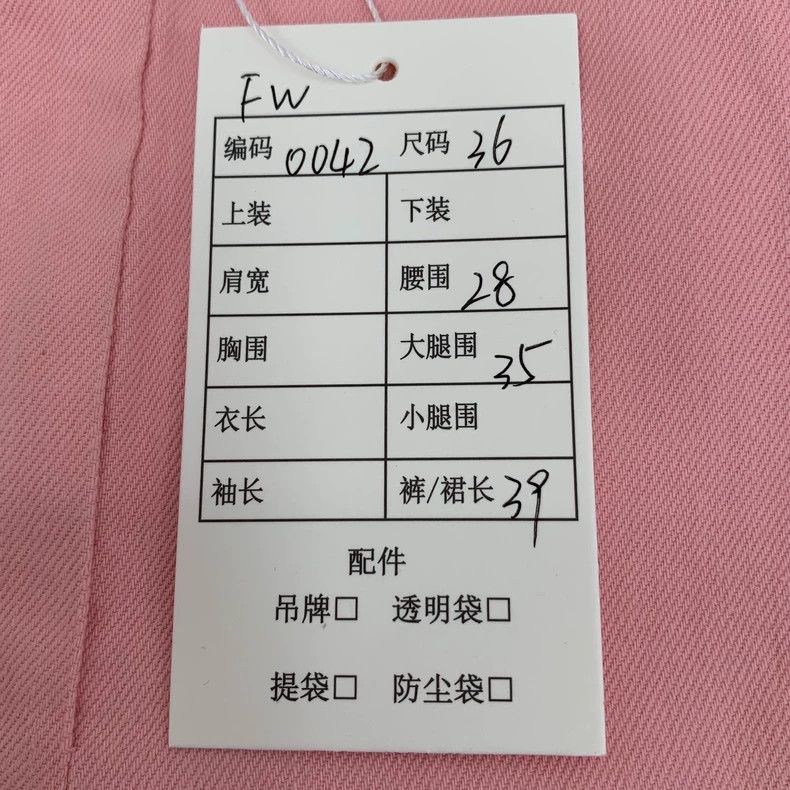 FW
编码 0042 尺码 36
上装 下装
肩宽 腰围 28
胸围 大腿围 35
衣长 小腿围
袖长 裤/裙长 39
配件
吊牌□ 透明袋□
提袋□ 防尘袋□